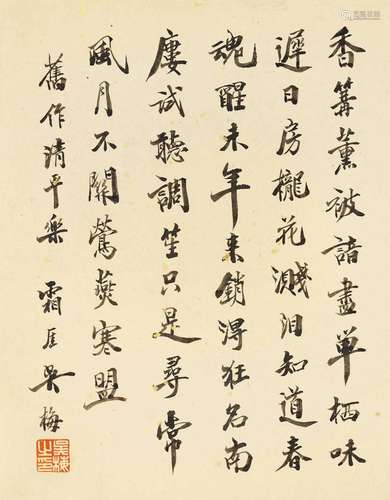 香篝薰被諳盡單栖味
遲日房櫳花濺泪知道春
魂醒未年来銷得狂名南
廔試聽調笙只是尋常
風月不關鶯燕寒盟
舊作清平樂 霜厓吴梅
吴梅之印